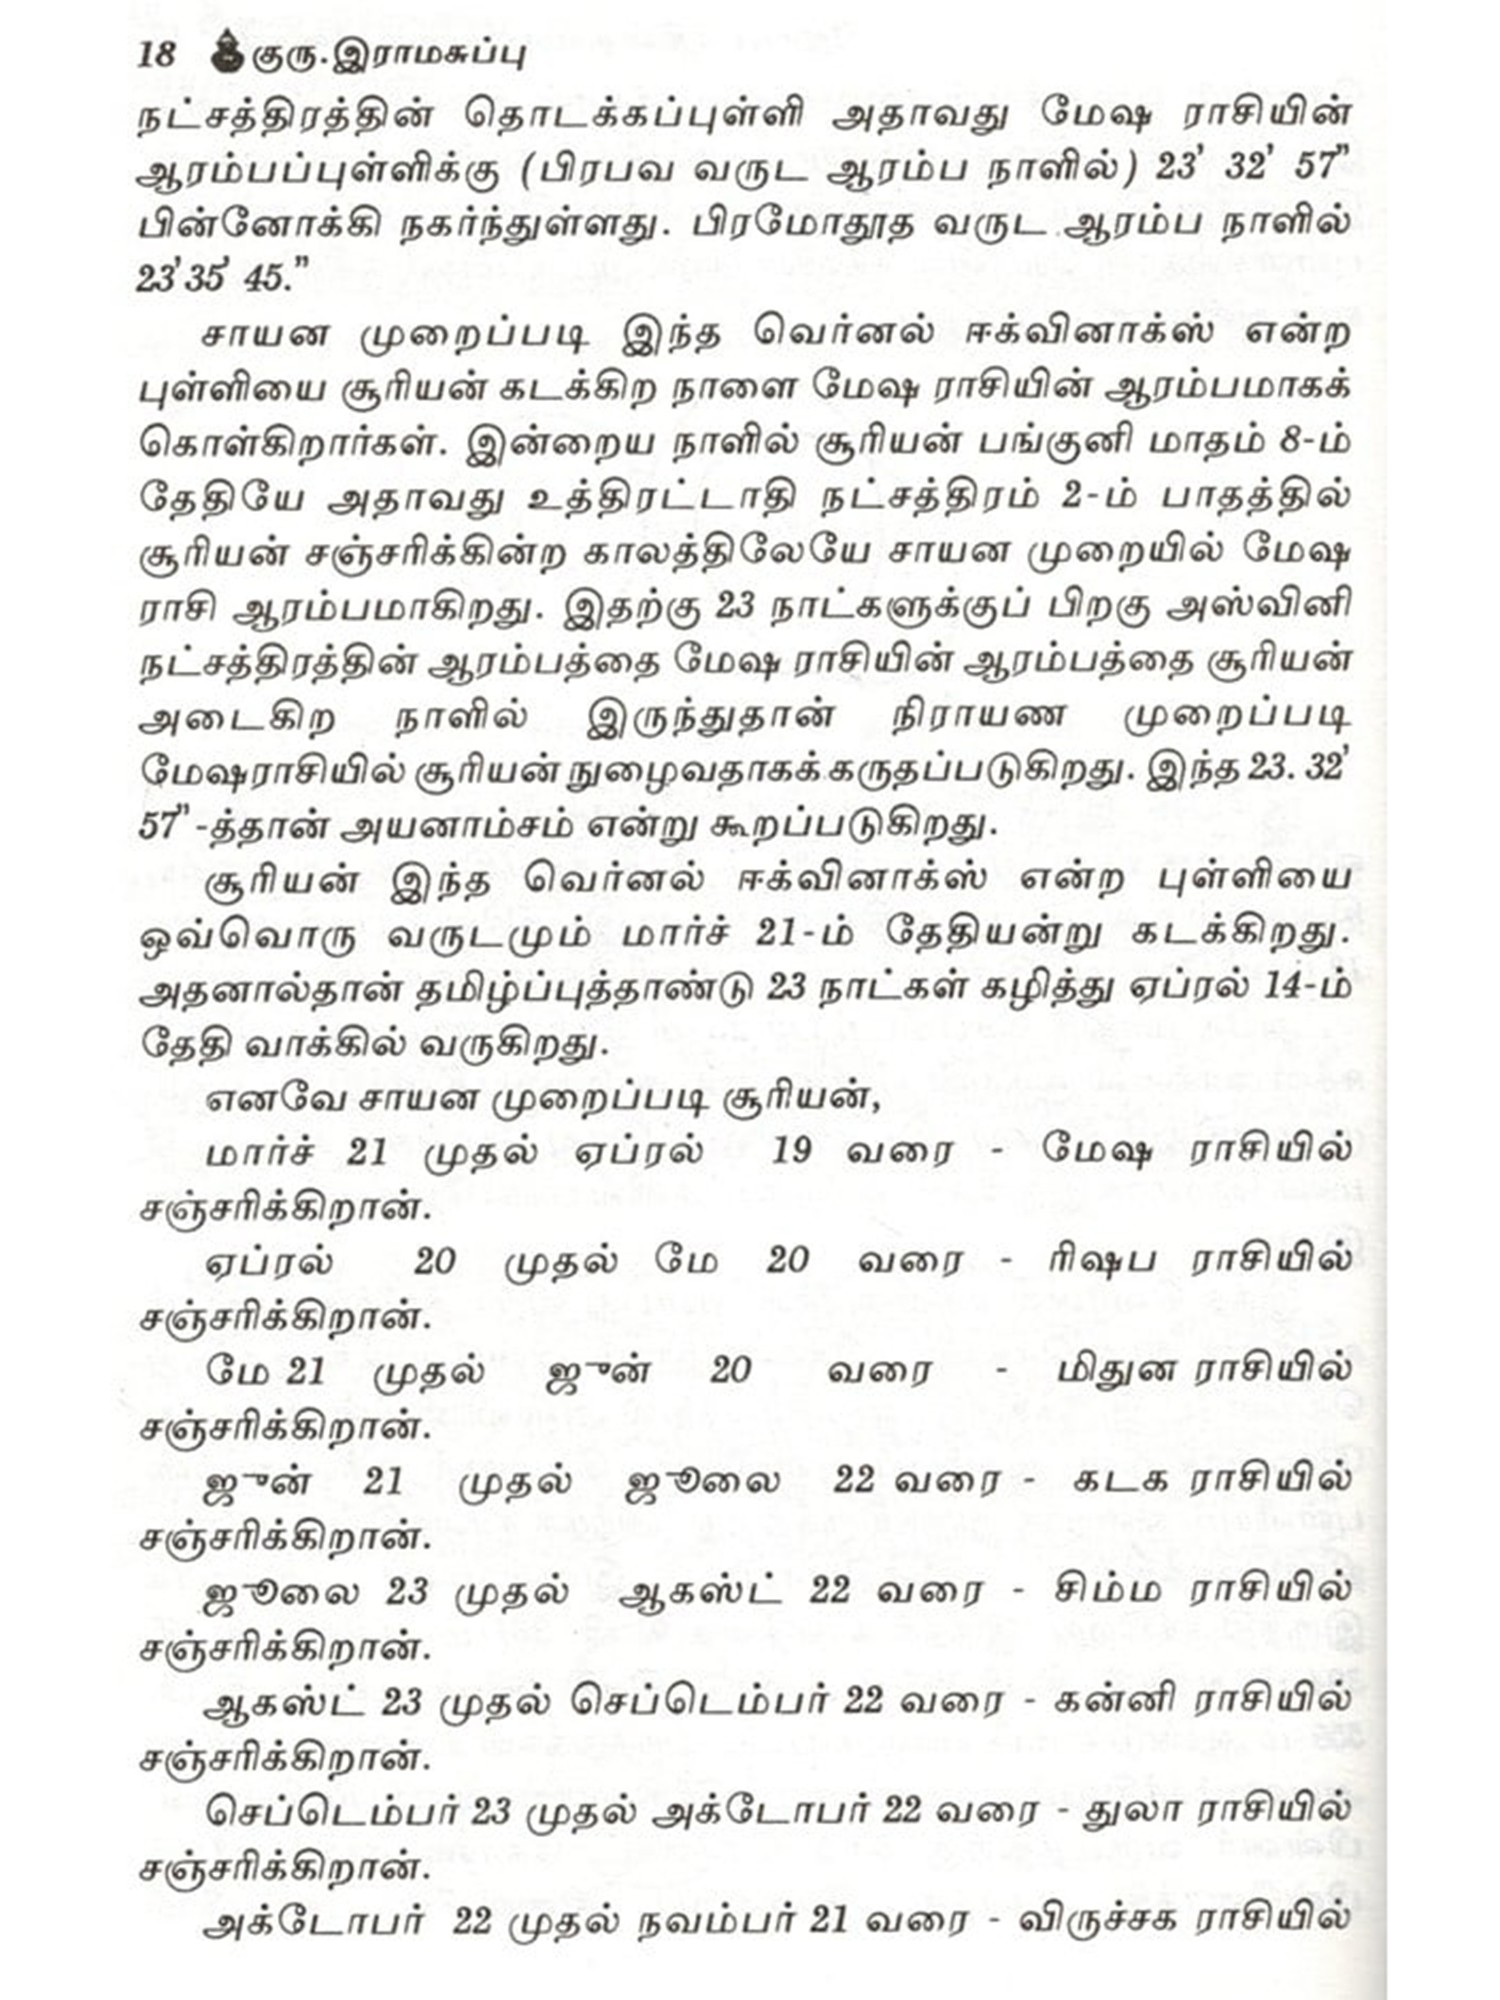 18 குரு.இராமசுப்பு
நட்சத்திரத்தின் தொடக்கப்புள்ளி அதாவது மேஷ ராசியின்
ஆரம்பப்புள்ளிக்கு (பிரபவ வருட ஆரம்ப நாளில்) 23' 32' 57"
பின்னோக்கி நகர்ந்துள்ளது. பிரமோதூத வருட ஆரம்ப நாளில்
23'35' 45."
சாயன முறைப்படி இந்த வெர்னல் ஈக்வினாக்ஸ் என்ற
புள்ளியை சூரியன் கடக்கிற நாளை மேஷ ராசியின் ஆரம்பமாகக்
கொள்கிறார்கள். இன்றைய நாளில் சூரியன் பங்குனி மாதம் 8-ம்
தேதியே அதாவது உத்திரட்டாதி நட்சத்திரம் 2-ம் பாதத்தில்
சூரியன் சஞ்சரிக்கின்ற காலத்திலேயே சாயன முறையில் மேஷ
ராசி ஆரம்பமாகிறது. இதற்கு 23 நாட்களுக்குப் பிறகு அஸ்வினி
நட்சத்திரத்தின் ஆரம்பத்தை மேஷ ராசியின் ஆரம்பத்தை சூரியன்
அடைகிற நாளில் இருந்துதான் நிராயண முறைப்படி
மேஷராசியில் சூரியன் நுழைவதாகக் கருதப்படுகிறது. இந்த 23. 32'
57"-த்தான் அயனாம்சம் என்று கூறப்படுகிறது.
சூரியன் இந்த வெர்னல் ஈக்வினாக்ஸ் என்ற புள்ளியை
ஒவ்வொரு வருடமும் மார்ச் 21-ம் தேதியன்று கடக்கிறது.
அதனால்தான் தமிழ்ப்புத்தாண்டு 23 நாட்கள் கழித்து ஏப்ரல் 14-ம்
தேதி வாக்கில் வருகிறது.
எனவே சாயன முறைப்படி சூரியன்,
மார்ச் 21 முதல் ஏப்ரல் 19 வரை - மேஷ ராசியில்
சஞ்சரிக்கிறான்.
ஏப்ரல் 20 முதல் மே 20 வரை - ரிஷப ராசியில்
சஞ்சரிக்கிறான்.
மே 21 முதல் ஜுன் 20 வரை - மிதுன ராசியில்
சஞ்சரிக்கிறான்.
ஜுன் 21 முதல் ஜூலை 22 வரை - கடக ராசியில்
சஞ்சரிக்கிறான்.
ஜூலை 23 முதல் ஆகஸ்ட் 22 வரை - சிம்ம ராசியில்
சஞ்சரிக்கிறான்.
ஆகஸ்ட் 23 முதல் செப்டெம்பர் 22 வரை - கன்னி ராசியில்
சஞ்சரிக்கிறான்.
செப்டெம்பர் 23 முதல் அக்டோபர் 22 வரை - துலா ராசியில்
சஞ்சரிக்கிறான்.
அக்டோபர் 22 முதல் நவம்பர் 21 வரை - விருச்சக ராசியில்